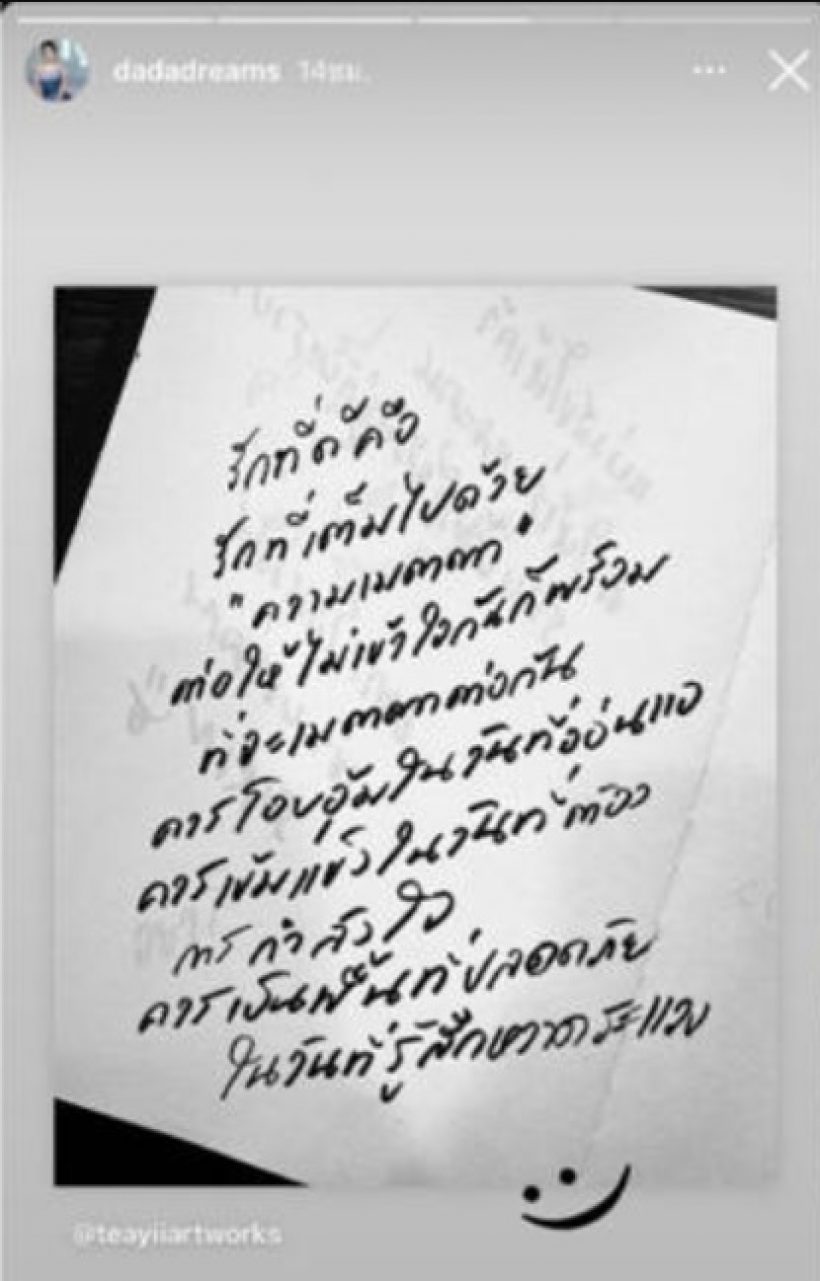 dadadreams 14ชม.
รักที่ดีคือ
รักที่เต็มไปด้วย
"ความเมตตา"
ต่อให้ไม่เข้าใจกันก็พร้อม
ที่จะเมตตาต่อกัน
ควรโอบอุ้มในวันที่อ่อนแอ
ควรเข้มแข็งในวันที่ต้อง
การกำลังใจ
ควรเป็นพื้นที่ปลอดภัย
ในวันที่รู้สึกหวาดระแวง
@teayiiartworks